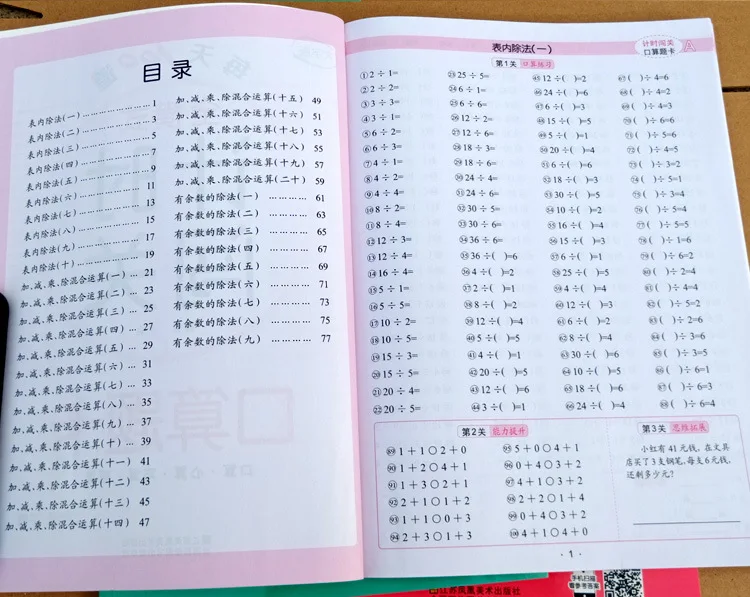 目录
表内除法(一) …………… 1
表内除法(二) …………… 3
表内除法(三) …………… 5
表内除法(四) …………… 7
表内除法(五) …………… 9
表内除法(六) …………… 11
表内除法(七) …………… 13
表内除法(八) …………… 15
表内除法(九) …………… 17
表内除法(十) …………… 19
加、减、乘、除混合运算(一) … 21
加、减、乘、除混合运算(二) … 23
加、减、乘、除混合运算(三) … 25
加、减、乘、除混合运算(四) … 27
加、减、乘、除混合运算(五) … 29
加、减、乘、除混合运算(六) … 31
加、减、乘、除混合运算(七) … 33
加、减、乘、除混合运算(八) … 35
加、减、乘、除混合运算(九) … 37
加、减、乘、除混合运算(十) … 39
加、减、乘、除混合运算(十一) 41
加、减、乘、除混合运算(十二) 43
加、减、乘、除混合运算(十三) 45
加、减、乘、除混合运算(十四) 47
加、减、乘、除混合运算(十五) 49
加、减、乘、除混合运算(十六) 51
加、减、乘、除混合运算(十七) 53
加、减、乘、除混合运算(十八) 55
加、减、乘、除混合运算(十九) 57
加、减、乘、除混合运算(二十) 59
有余数的除法(一) ………… 61
有余数的除法(二) ………… 63
有余数的除法(三) ………… 65
有余数的除法(四) ………… 67
有余数的除法(五) ………… 69
有余数的除法(六) ………… 71
有余数的除法(七) ………… 73
有余数的除法(八) ………… 75
有余数的除法(九) ………… 77
表内除法(一)
计时闯关
口算题卡
A
第1关 口算练习
①2÷1=
②2÷2=
③3÷3=
④3÷1=
⑤6÷2=
⑥6÷3=
⑦4÷1=
⑧4÷2=
⑨4÷4=
⑩8÷2=
⑪8÷4=
⑫12÷3=
⑬12÷4=
⑭16÷4=
⑮5÷1=
⑯5÷5=
⑰10÷2=
⑱10÷5=
⑲15÷3=
⑳15÷5=
㉑20÷4=
㉒20÷5=
㉓25÷5=
㉔6÷1=
㉕6÷6=
㉖12÷2=
㉗12÷6=
㉘18÷3=
㉙18÷6=
㉚24÷4=
㉛24÷6=
㉜30÷5=
㉝30÷6=
㉞36÷6=
㉟36÷( )=6
㊱4÷( )=2
㊲2÷( )=1
㊳8÷( )=2
㊴12÷( )=4
㊵5÷( )=5
㊶4÷( )=1
㊷20÷( )=5
㊸12÷( )=6
㊹3÷( )=1
㊺12÷( )=2
㊻24÷( )=6
㊼6÷( )=3
㊽15÷( )=5
㊾5÷( )=1
㊿20÷( )=4
51 6÷( )=6
52 18÷( )=3
53 30÷( )=5
54 10÷( )=2
55 16÷( )=4
56 15÷( )=3
57 6÷( )=1
58 25÷( )=5
59 4÷( )=4
60 12÷( )=3
61 6÷( )=2
62 8÷( )=4
63 30÷( )=6
64 10÷( )=5
65 18÷( )=6
66 24÷( )=4
67 ( )÷4=6
68 ( )÷4=2
69 ( )÷4=3
70 ( )÷6=6
71 ( )÷5=6
72 ( )÷4=5
73 ( )÷3=2
74 ( )÷5=1
75 ( )÷3=4
76 ( )÷5=4
77 ( )÷5=5
78 ( )÷1=6
79 ( )÷6=2
80 ( )÷2=4
81 ( )÷4=4
82 ( )÷5=2
83 ( )÷2=6
84 ( )÷3=6
85 ( )÷3=5
86 ( )÷6=1
87 ( )÷6=3
88 ( )÷6=4
第2关 能力提升
89 1+1○2+0
90 1+2○4+1
91 1+3○2+1
92 2+1○1+2
93 1+1○0+3
94 2+3○1+3
95 5+0○4+1
96 0+4○3+2
97 4+1○3+2
98 2+2○1+4
99 0+4○3+2
100 4+1○4+0
第3关 思维拓展
小红有41元钱,在文具
店买了3支钢笔,每支6元钱,
还剩多少元?
·1·
江苏凤凰美术出版社
手机扫描
看参考答案